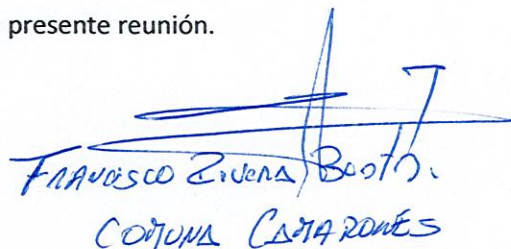 presente reunión.
FRANCISCO RIVERA BUSTOS.
COMUNA CAMARONES